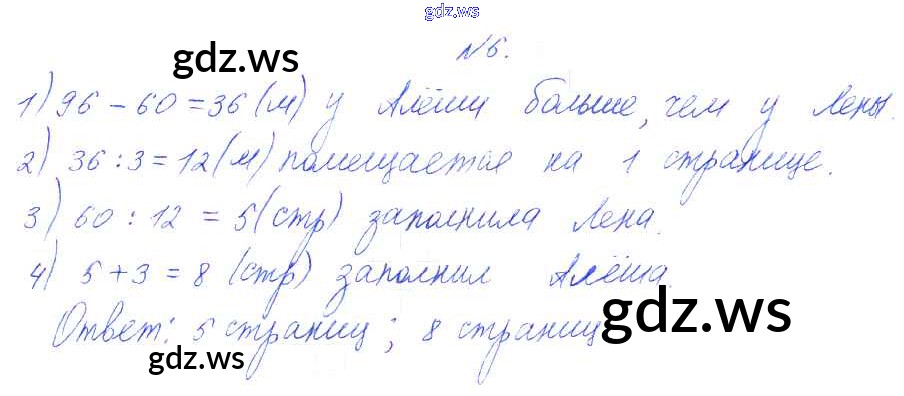 gdz.ws
gdz.ws
№6.
1) 96 - 60 = 36 (м) у Алёши больше, чем у Лены.
2) 36 : 3 = 12 (м) помещается на 1 странице.
3) 60 : 12 = 5 (стр) заполнила Лена.
4) 5 + 3 = 8 (стр) заполнил Алёша.
gdz.ws
Ответ: 5 страниц; 8 страниц
gdz.ws